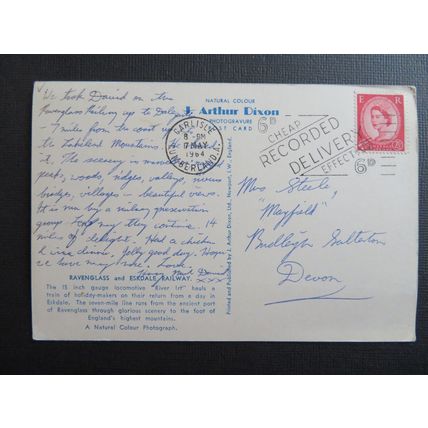 We took David on the
Ravenglass Railway up to Dalegarth
7 miles from the coast up
the Lakeland Mountains.
it. The scenery is
peaks, woods, ridges, valleys, rivers
bridges, villages - beautiful views.
It is run by a railway preservation
group. Long may they continue. 14
miles of delight. Had a chicken
& wine dinner. Jolly good day. Hope
we have many more.
David
xxx
RAVENGLASS and ESKDALE RAILWAY.
The 15 inch gauge locomotive "River Irt" hauls a
train of holiday-makers on their return from a day in
Eskdale. The seven-mile line runs from the ancient port
of Ravenglass through glorious scenery to the foot of
England's highest mountains.
A Natural Colour Photograph.
Printed and Published by J. Arthur Dixon, Ltd., Newport, I.W., England.
NATURAL COLOUR
J. Arthur Dixon
PHOTOGRAVURE
POST CARD
CARLISLE
8-PM
7 MAY
1964
CUMBERLAND
6D
CHEAP
RECORDED
DELIVERY
EFFECTIVE
6D
E R
Mrs Steele,
"Mayfield"
Budleigh Salterton
Devon